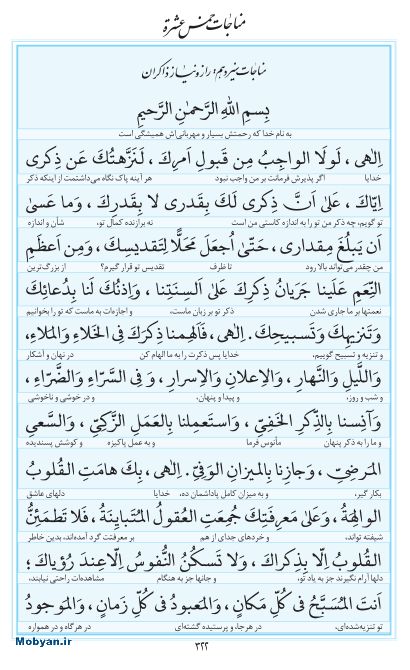 مناجات خمس عشرة
مناجات سیزدهم: راز و نیاز ذاکران
بِسمِ اللهِ الرَّحمٰنِ الرَّحیمِ
به نام خدا که رحمتش بسیار و مهربانی‌اش همیشگی است
اِلٰهی، لَولَا الواجِبُ مِن قَبولِ اَمرِكَ، لَنَزَّهتُكَ عَن ذِکری
خدایا اگر پذیرش فرمانت بر من واجب نبود هر آینه پاک نگاه می‌داشتمت از اینکه ذکر
اِیّاكَ، عَلیٰ اَنَّ ذِکری لَكَ بِقَدری لا بِقَدرِكَ، وَما عَسیٰ
تو گویم، چه ذکر من تو را به اندازه کاستی من است نه برازنده کمال تو، شأن و اندازه
اَن یَبلُغَ مِقداری، حَتّیٰ اُجعَلَ مَحَلًّا لِتَقدیسِكَ، وَمِن اَعظَمِ
من چقدر می‌تواند بالا رود تا ظرف تقدیس تو قرار گیرم؟ از بزرگ‌ترین
النِّعَمِ عَلَینا جَرَیانُ ذِکرِكَ عَلیٰ اَلسِنَتِنا، وَاِذنُكَ لَنا بِدُعائِكَ
نعمتها بر ما جاری شدن ذکر تو بر زبان ماست، و اجازه‌ات به ماست که تو را بخوانیم
وَتَنزیهِكَ وَتَسبیحِكَ. اِلٰهی، فَاَلهِمنا ذِکرَكَ فِی الخَلاءِ وَالمَلاءِ،
و تنزیه و تسبیح گوییم. خدایا پس ذکرت را به ما الهام کن در نهان و آشکار
وَاللَّیلِ وَالنَّهارِ، وَالاِعلانِ وَالاِسرارِ، وَفِی السَّرّاءِ وَالضَّرّاءِ،
و شب و روز، و پیدا و پنهان، و در خوشی و ناخوشی
وَآنِسنا بِالذِّکرِ الخَفِیِّ، وَاستَعمِلنا بِالعَمَلِ الزَّکِیِّ، وَالسَّعیِ
و ما را به ذکر پنهان مأنوس فرما و به عمل پاکیزه و کوشش پسندیده
المَرضِیِّ، وَجازِنا بِالمیزانِ الوَفِیِّ. اِلٰهی، بِكَ هامَتِ القُلوبُ
بکار گیر، و به میزان کامل پاداشمان ده، خدایا دلهای عاشق
الوالِهَةُ، وَعَلیٰ مَعرِفَتِكَ جُمِعَتِ العُقولُ المُتَبایِنَةُ، فَلا تَطمَئِنُّ
شیفته تواند، و خردهای جدای از هم بر معرفتت گرد آمده‌اند، بدین خاطر
القُلوبُ اِلّا بِذِکراكَ، وَلا تَسکُنُ النُّفوسُ اِلّا عِندَ رُؤیاكَ؛
دلها آرام نگیرند جز به یاد تو، و جانها جز به هنگام مشاهده‌ات راحتی نیابند،
اَنتَ المُسَبَّحُ فی کُلِّ مَکانٍ، وَالمَعبودُ فی کُلِّ زَمانٍ، وَالمَوجودُ
تو تنزیه‌شده‌ای، در هر جا، و پرستیده گشته‌ای در هر گاه و در همواره
۳۲۲
Mobyan.ir